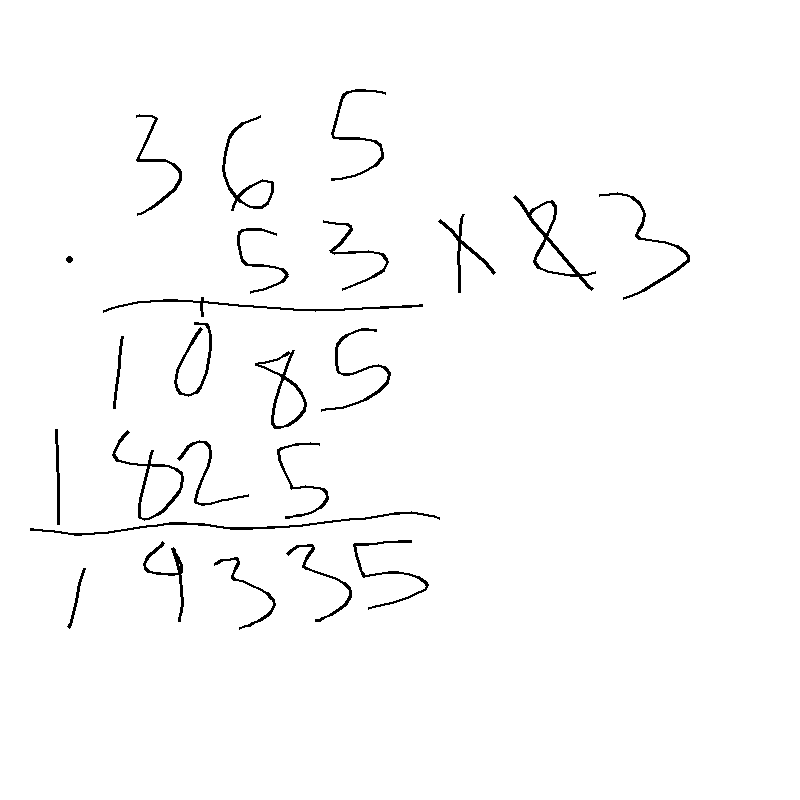 365
. 53 × 3
1085
1825
19335